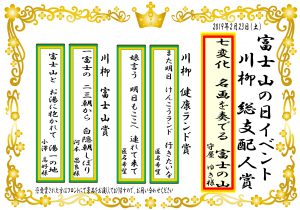 2019年2月23日(土)
富士山の日イベント
川柳 総支配人賞
七変化 名画を奏でる 富士の山
守屋 ゆき様
川柳 健康ランド賞
また明日 けんこうランド 行きたいな
匿名希望
娘言う 明日もここへ 連れて来て
匿名希望
川柳 富士山賞
一富士の 二三朝から 白隠搾り
河本 昌良様
富士山と お湯に抱かれて 湯一の地
小澤